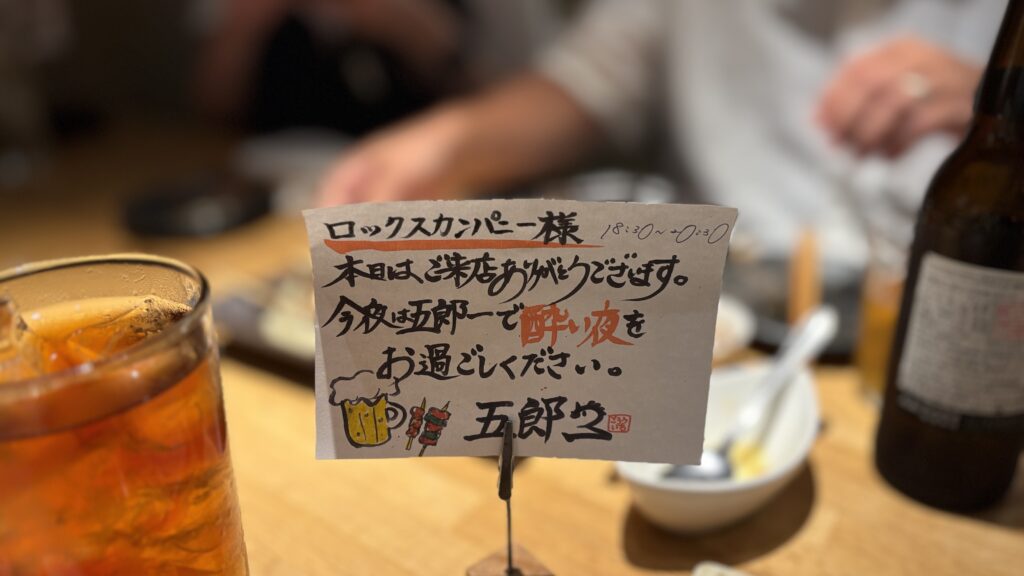 ロックスカンパニー様 18:30〜20:30
本日は、ご来店ありがとうございます。
今夜は五郎一で酔い夜を
お過ごしください。
五郎一